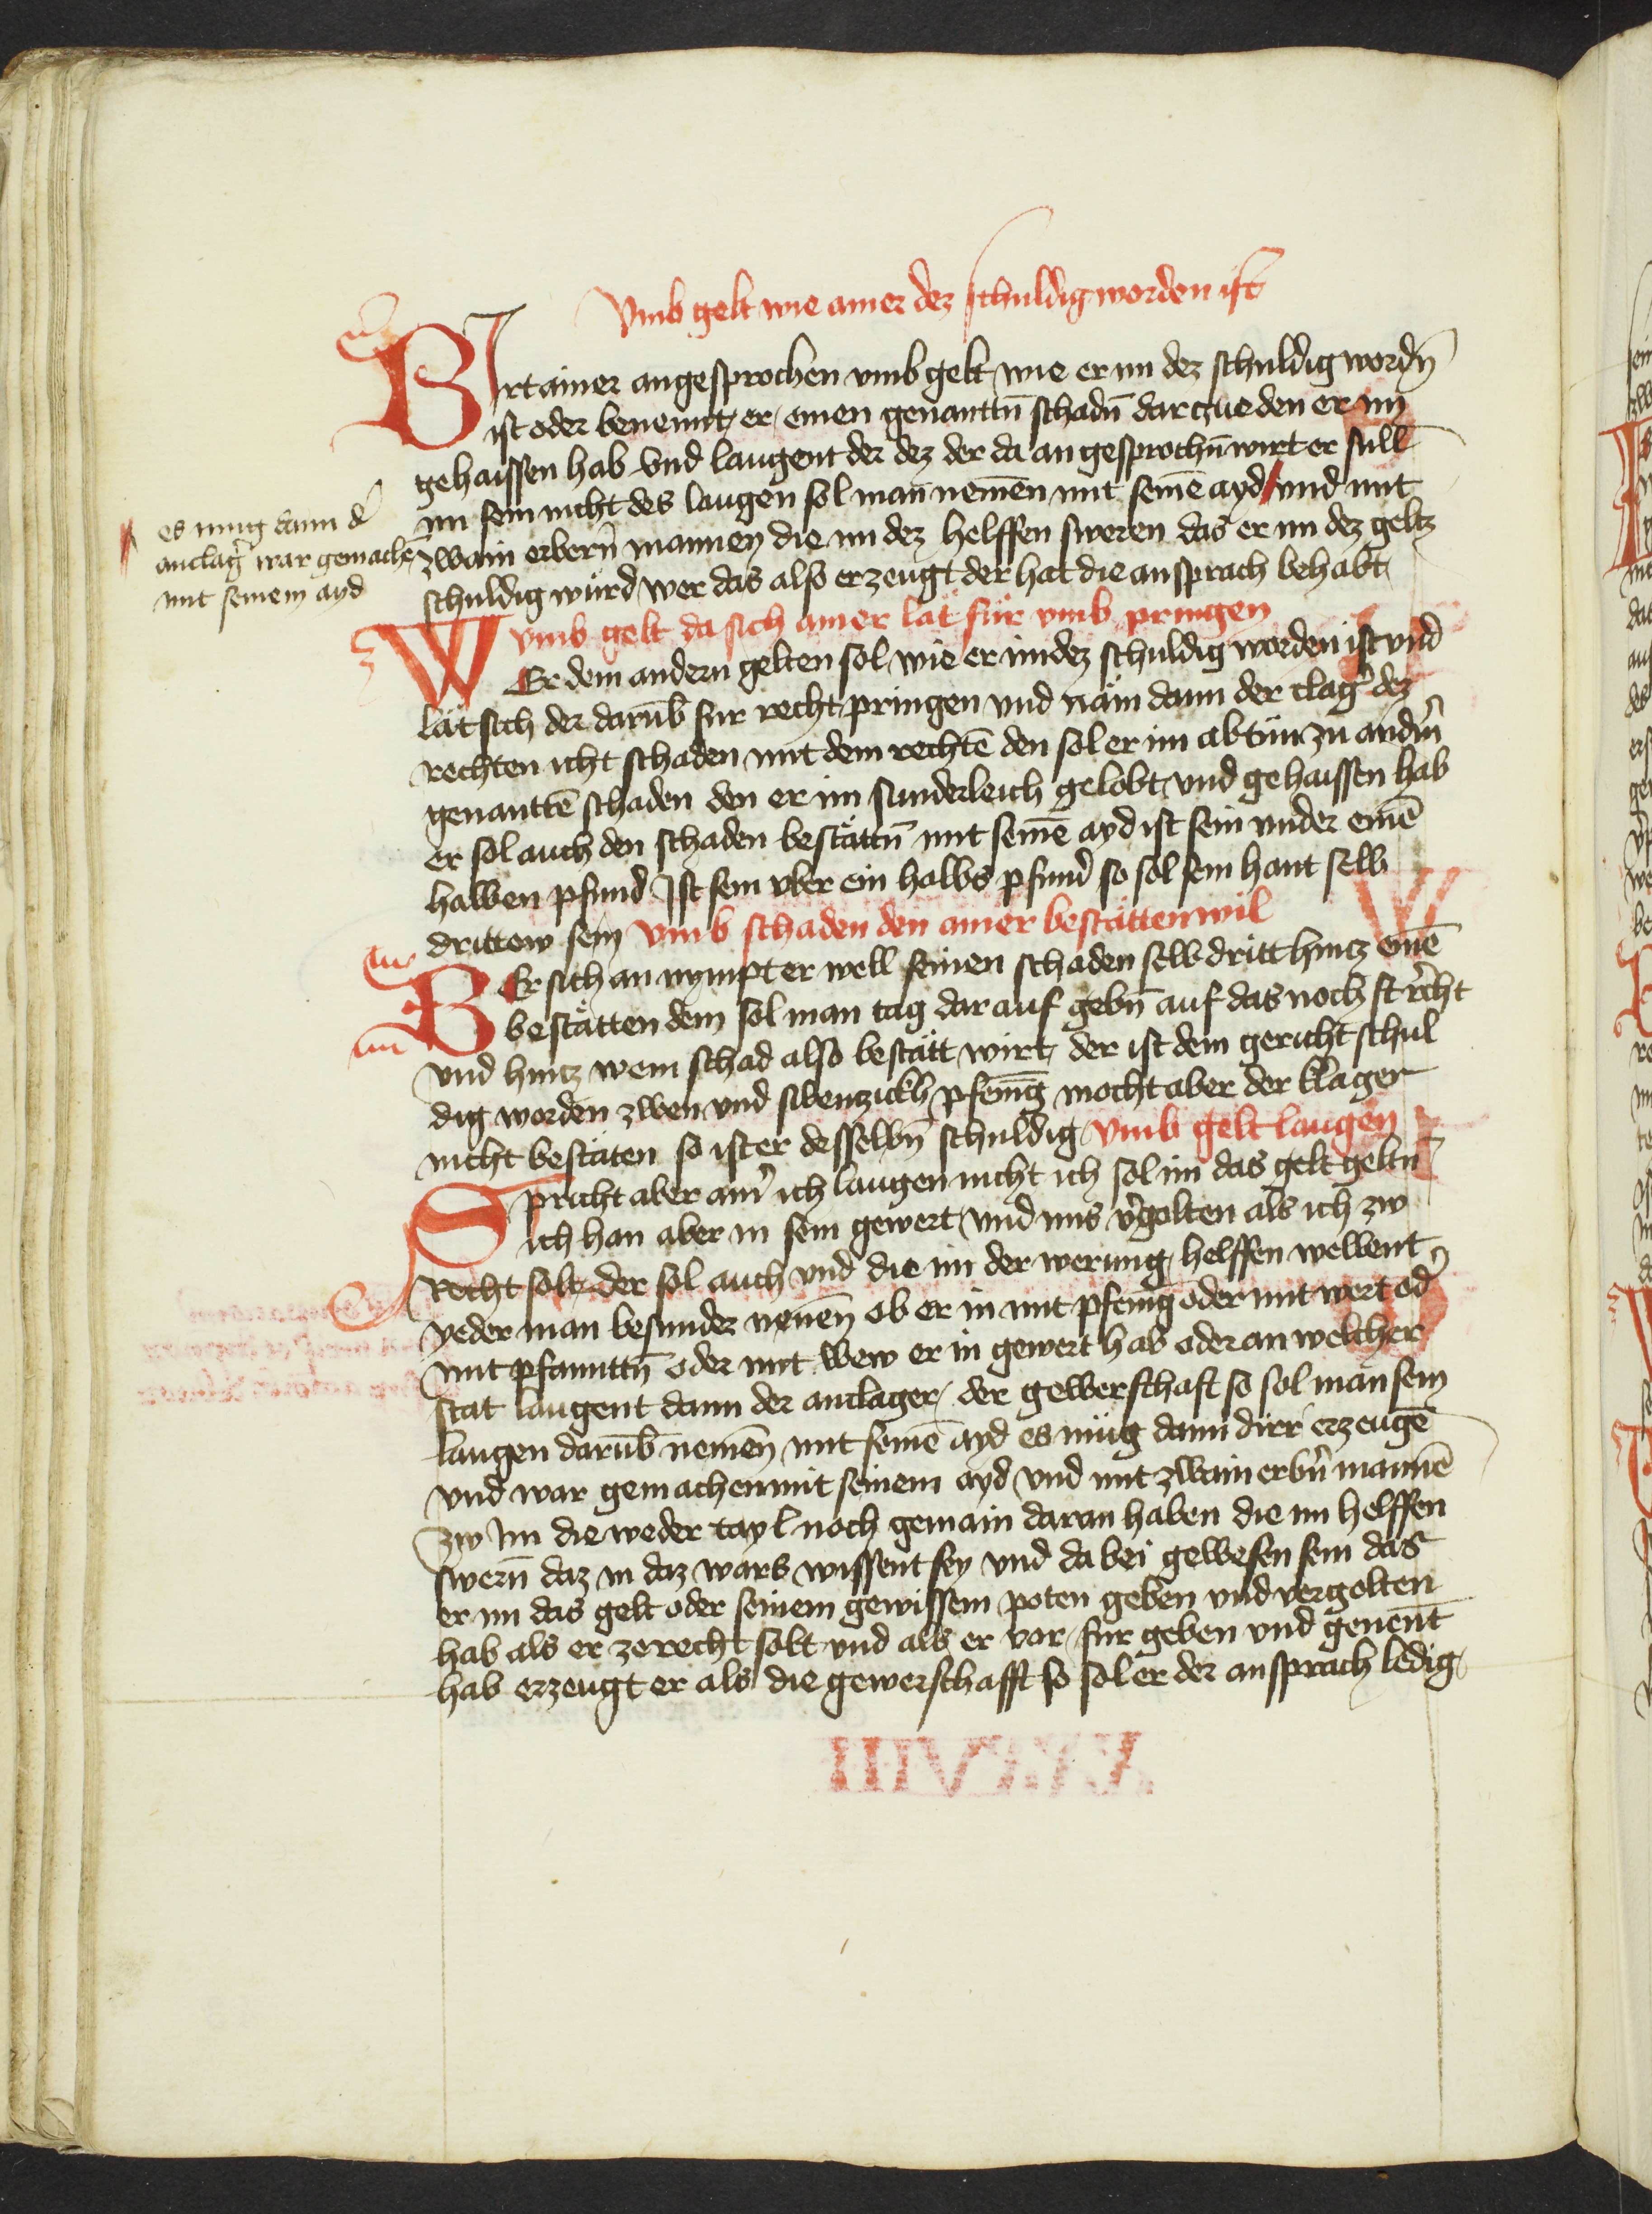 Vmb gelt wie ainer dez schuldig worden ist
BIrt ainer angesprochen vmb gelt wie er im dez schuldig wordn̄
ist oder benennt er einen genanttn̄ schadn̄ darczue den er im
gehaissen hab vnd laugent der dez der da angesprochn̄ wirt er sull
im sein nicht des laugen sol man nemen mit seinē ayd / vnd mit
es mug dann d̓
anclag̓ war gemachē
mit seinem ayd
zwain erbern̄ mannen die im dez helffen sweren das er im dez geltz
schuldig würd wer das also erzeugt der hat die ansprach behabt
vmb gelt da sich ainer lät für vmb pringen
WEr dem andern gelten sol wie er im dez schuldig worden ist vnd
lät sich der darūb fur recht pringen vnd näm dann der clag̓ dez
rechten icht schaden mit dem rechtē den sol er im abtün zu andn̄
genanttē schaden den er im sunderleich gelobt vnd gehaissen hab
er sol auch den schaden bestättn̄ mit seinē ayd ist sein vnder einē
halben pfund Ist sein vber ein halbs pfund so sol sein hant selb
drittew sein vmb schaden den ainer bestättenwil
BEr sich an nympt er well seinen schaden selb dritt hintz einē
bestätten dem sol man tag dar auf gebn̄ auf das noch st recht
vnd hintz wem schad also bestätt wirt der ist dem gericht schul
dig worden zwen vnd sibenzickh pfenīg mocht aber der klager
nicht bestäten so ist er desselbn̄ schuldig vmb gelt laugen
Spricht aber ain̓ ich laugen nicht ich sol im das gelt geltn̄
ich han aber in sein gewert vnd ims v̓golten als ich zw
Recht solt der sol auch vnd die im der werung helffen wellent
yeder man besunder nenen ob er in mit pfenīg oder mit wert od̓
mit pfannttn̄ oder mit wew er in gewert hab oder an welcher
stat laugent dann der anclager der gewerschaft so sol man sein
laugen darūb nemen mit seinē ayd es müg dann dirr erzeugē
vnd war gemachen mit seinem ayd vnd mit zwain erbn̄ mannē
zw Im die weder tayl noch gemain daran haben die im helffen
swern̄ daz in daz wars wissent sey vnd da bei gewesen sein das
er im das gelt oder seinem gewissem poten geben vnd vergolten
hab als er ze recht solt vnd als er vor fur geben vnd genent
hab erzeugt er als die gewerschafft so sol er der ansprach ledig